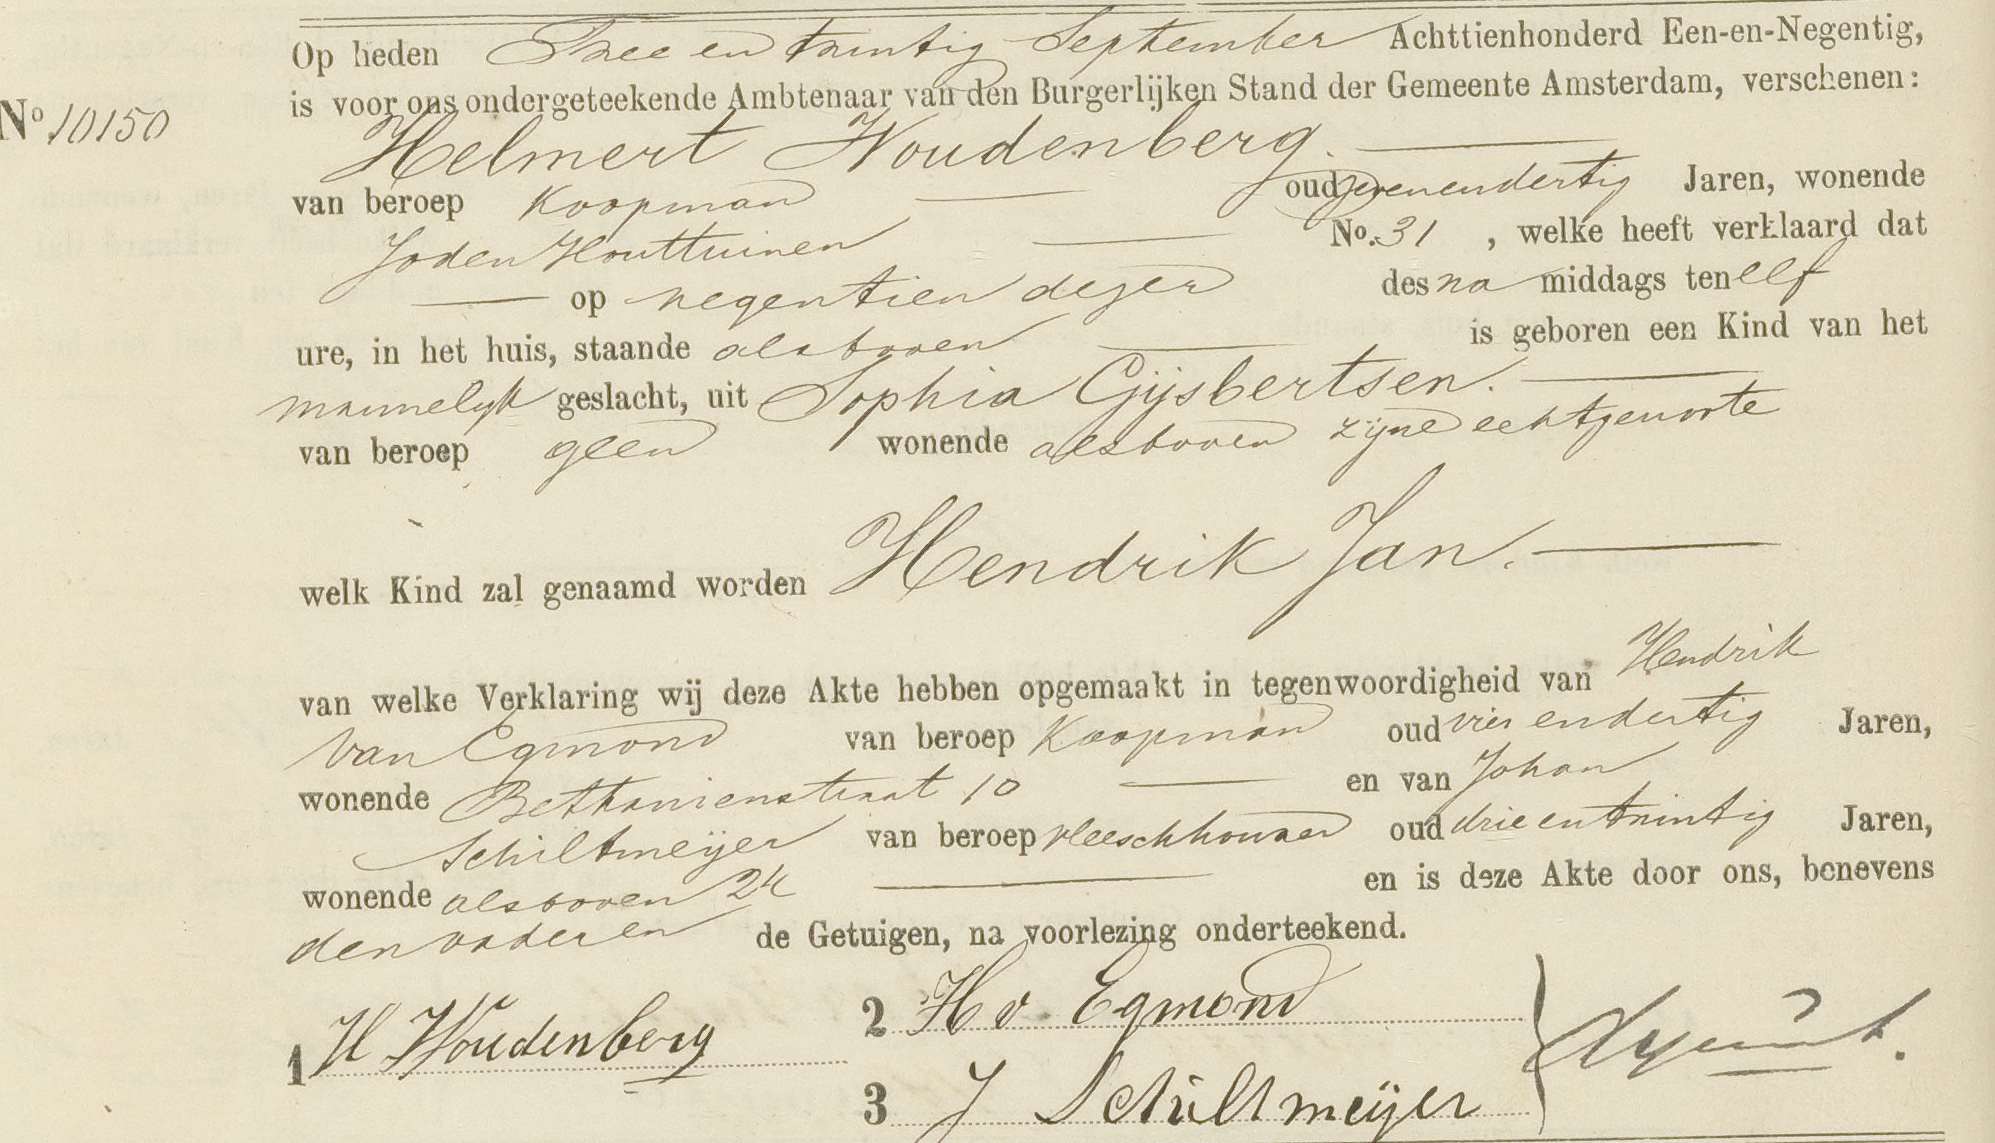 Op heden Twee en twintig September Achttienhonderd Een-en-Negentig,
is voor ons ondergeteekende Ambtenaar van den Burgerlijken Stand der Gemeente Amsterdam, verschenen:
No 10150
Helmert Woudenberg.
van beroep Koopman oud zevenendertig Jaren, wonende
Joden Houttuinen No. 31 , welke heeft verklaard dat
op negentien dezer des na middags ten elf
ure, in het huis, staande alsboven is geboren een Kind van het
mannelijk geslacht, uit Sophia Gijsbertsen.
van beroep geen wonende alsboven zijne echtgenoote
welk Kind zal genaamd worden Hendrik Jan.
van welke Verklaring wij deze Akte hebben opgemaakt in tegenwoordigheid van Hendrik
van Egmond van beroep Koopman oud vier endertig Jaren,
wonende Bethanienstraat 10 en van Johan
Schiltmeijer van beroep vleeschhouwer oud drie entwintig Jaren,
wonende alsboven 24 en is deze Akte door ons, benevens
den vader en de Getuigen, na voorlezing onderteekend.
1 H Woudenberg
2 H v. Egmond
3 J Schiltmeijer